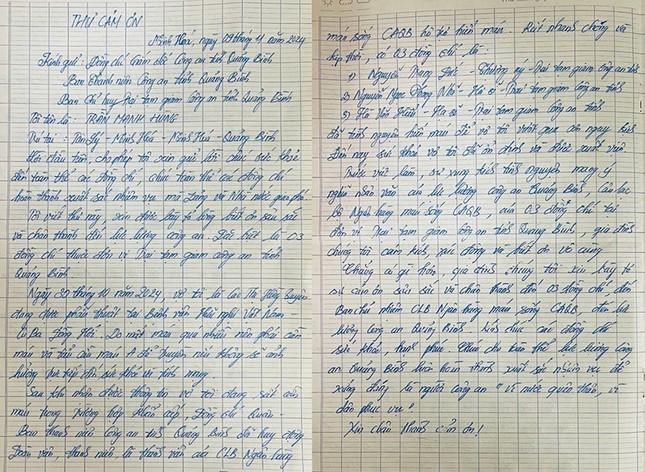 THƯ CẢM ƠN
Minh Hóa, ngày 09 tháng 11 năm 2024
Kính gửi: Đồng chí Giám đốc Công an tỉnh Quảng Bình
Ban Thanh niên Công an tỉnh Quảng Bình
Ban chỉ huy Trại tạm giam Công an tỉnh Quảng Bình
Tôi tên là: TRẦN MẠNH HÙNG
Trú tại: Minh Hóa - Quảng Bình
Lời đầu tiên, cho phép tôi xin gửi lời chúc sức khỏe
đến toàn thể các đồng chí, chúc toàn thể các đồng chí
hoàn thành xuất sắc nhiệm vụ mà Đảng và Nhà nước giao phó.
Tôi viết thư này, xin được bày tỏ lòng biết ơn sâu sắc
và chân thành đến lực lượng công an. Đặc biệt là 03
đồng chí thuộc đơn vị Trại tạm giam công an tỉnh
Quảng Bình.
Ngày 30 tháng 10 năm 2024, vợ tôi là Cao Thị Hồng
đang được phẫu thuật tại Bệnh viện Hữu nghị Việt Nam -
Cu Ba Đồng Hới. Do mất máu quá nhiều nên phải cần
máu và tiểu cầu máu A để truyền nếu không sẽ ảnh
hưởng trực tiếp đến sức khỏe và tính mạng.
Sau khi nhận được thông tin vợ tôi đang rất cần
máu trong trường hợp khẩn cấp, Đồng chí Xuân -
Ban thanh niên Công an tỉnh Quảng Bình đã huy động
Đoàn viên, thanh niên là thành viên của CLB Ngân hàng
máu sống CAQB hỗ trợ hiến máu. Rất nhanh chóng và
kịp thời, có 03 đồng chí là:
1) Nguyễn - Thượng úy - Trại tạm giam công an tỉnh
2) Nguyễn Ngọc - Hạ sĩ - Trại tạm giam công an tỉnh
3) Hồ Văn - Hạ sĩ - Trại tạm giam công an tỉnh
đã tình nguyện hiến máu để vợ tôi vượt qua cơn nguy kịch
Đến nay sức khỏe vợ tôi đã ổn định và được xuất viện.
Trước việc làm, sự xung kích tình nguyện mang ý
nghĩa nhân văn của lực lượng công an Quảng Bình, Câu lạc
bộ Ngân hàng máu sống CAQB, của 03 đồng chí tại
đơn vị Trại tạm giam công an tỉnh Quảng Bình, gia đình
chúng tôi cảm kích, xúc động và biết ơn vô cùng
Chẳng có gì hơn, gia đình chúng tôi xin bày tỏ
sự cảm ơn sâu sắc và chân thành đến 03 đồng chí, đến
Ban chủ nhiệm CLB Ngân hàng máu sống CAQB, đến lực
lượng Công an Quảng Bình. Kính chúc các đồng chí
sức khỏe, hạnh phúc. Chúc cho toàn thể lực lượng Công
an Quảng Bình luôn hoàn thành xuất sắc nhiệm vụ để
xứng đáng là người công an "vì nước quên thân, vì
dân phục vụ"
Xin chân thành cảm ơn!